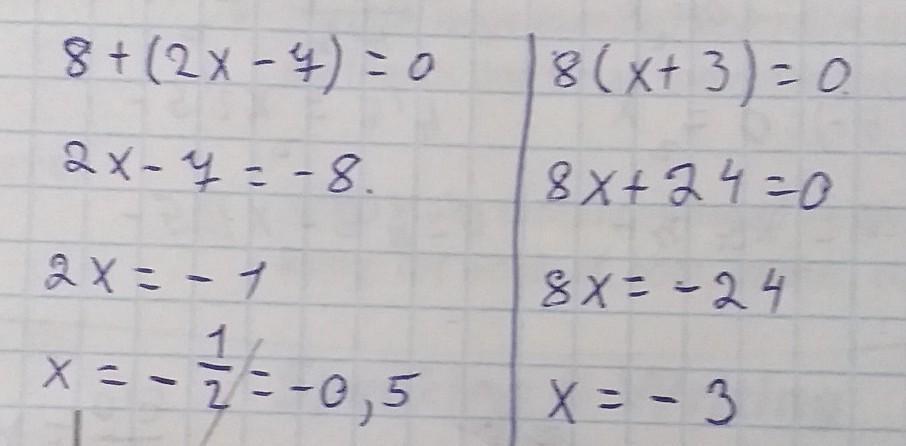 8+(2x-7)=0
2x-7=-8.
2x=-1
x=-1/2=-0,5
8(x+3)=0
8x+24=0
8x=-24
x=-3